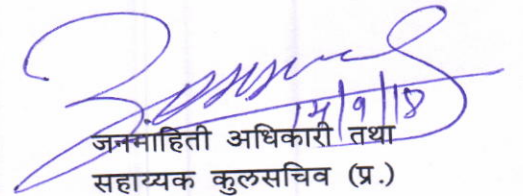 14/9/18
जनमाहिती अधिकारी तथा
सहाय्यक कुलसचिव (प्र.)